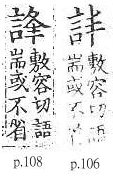 敷容切
耑或不
敷容切語
耑或不省
p.108
p.106